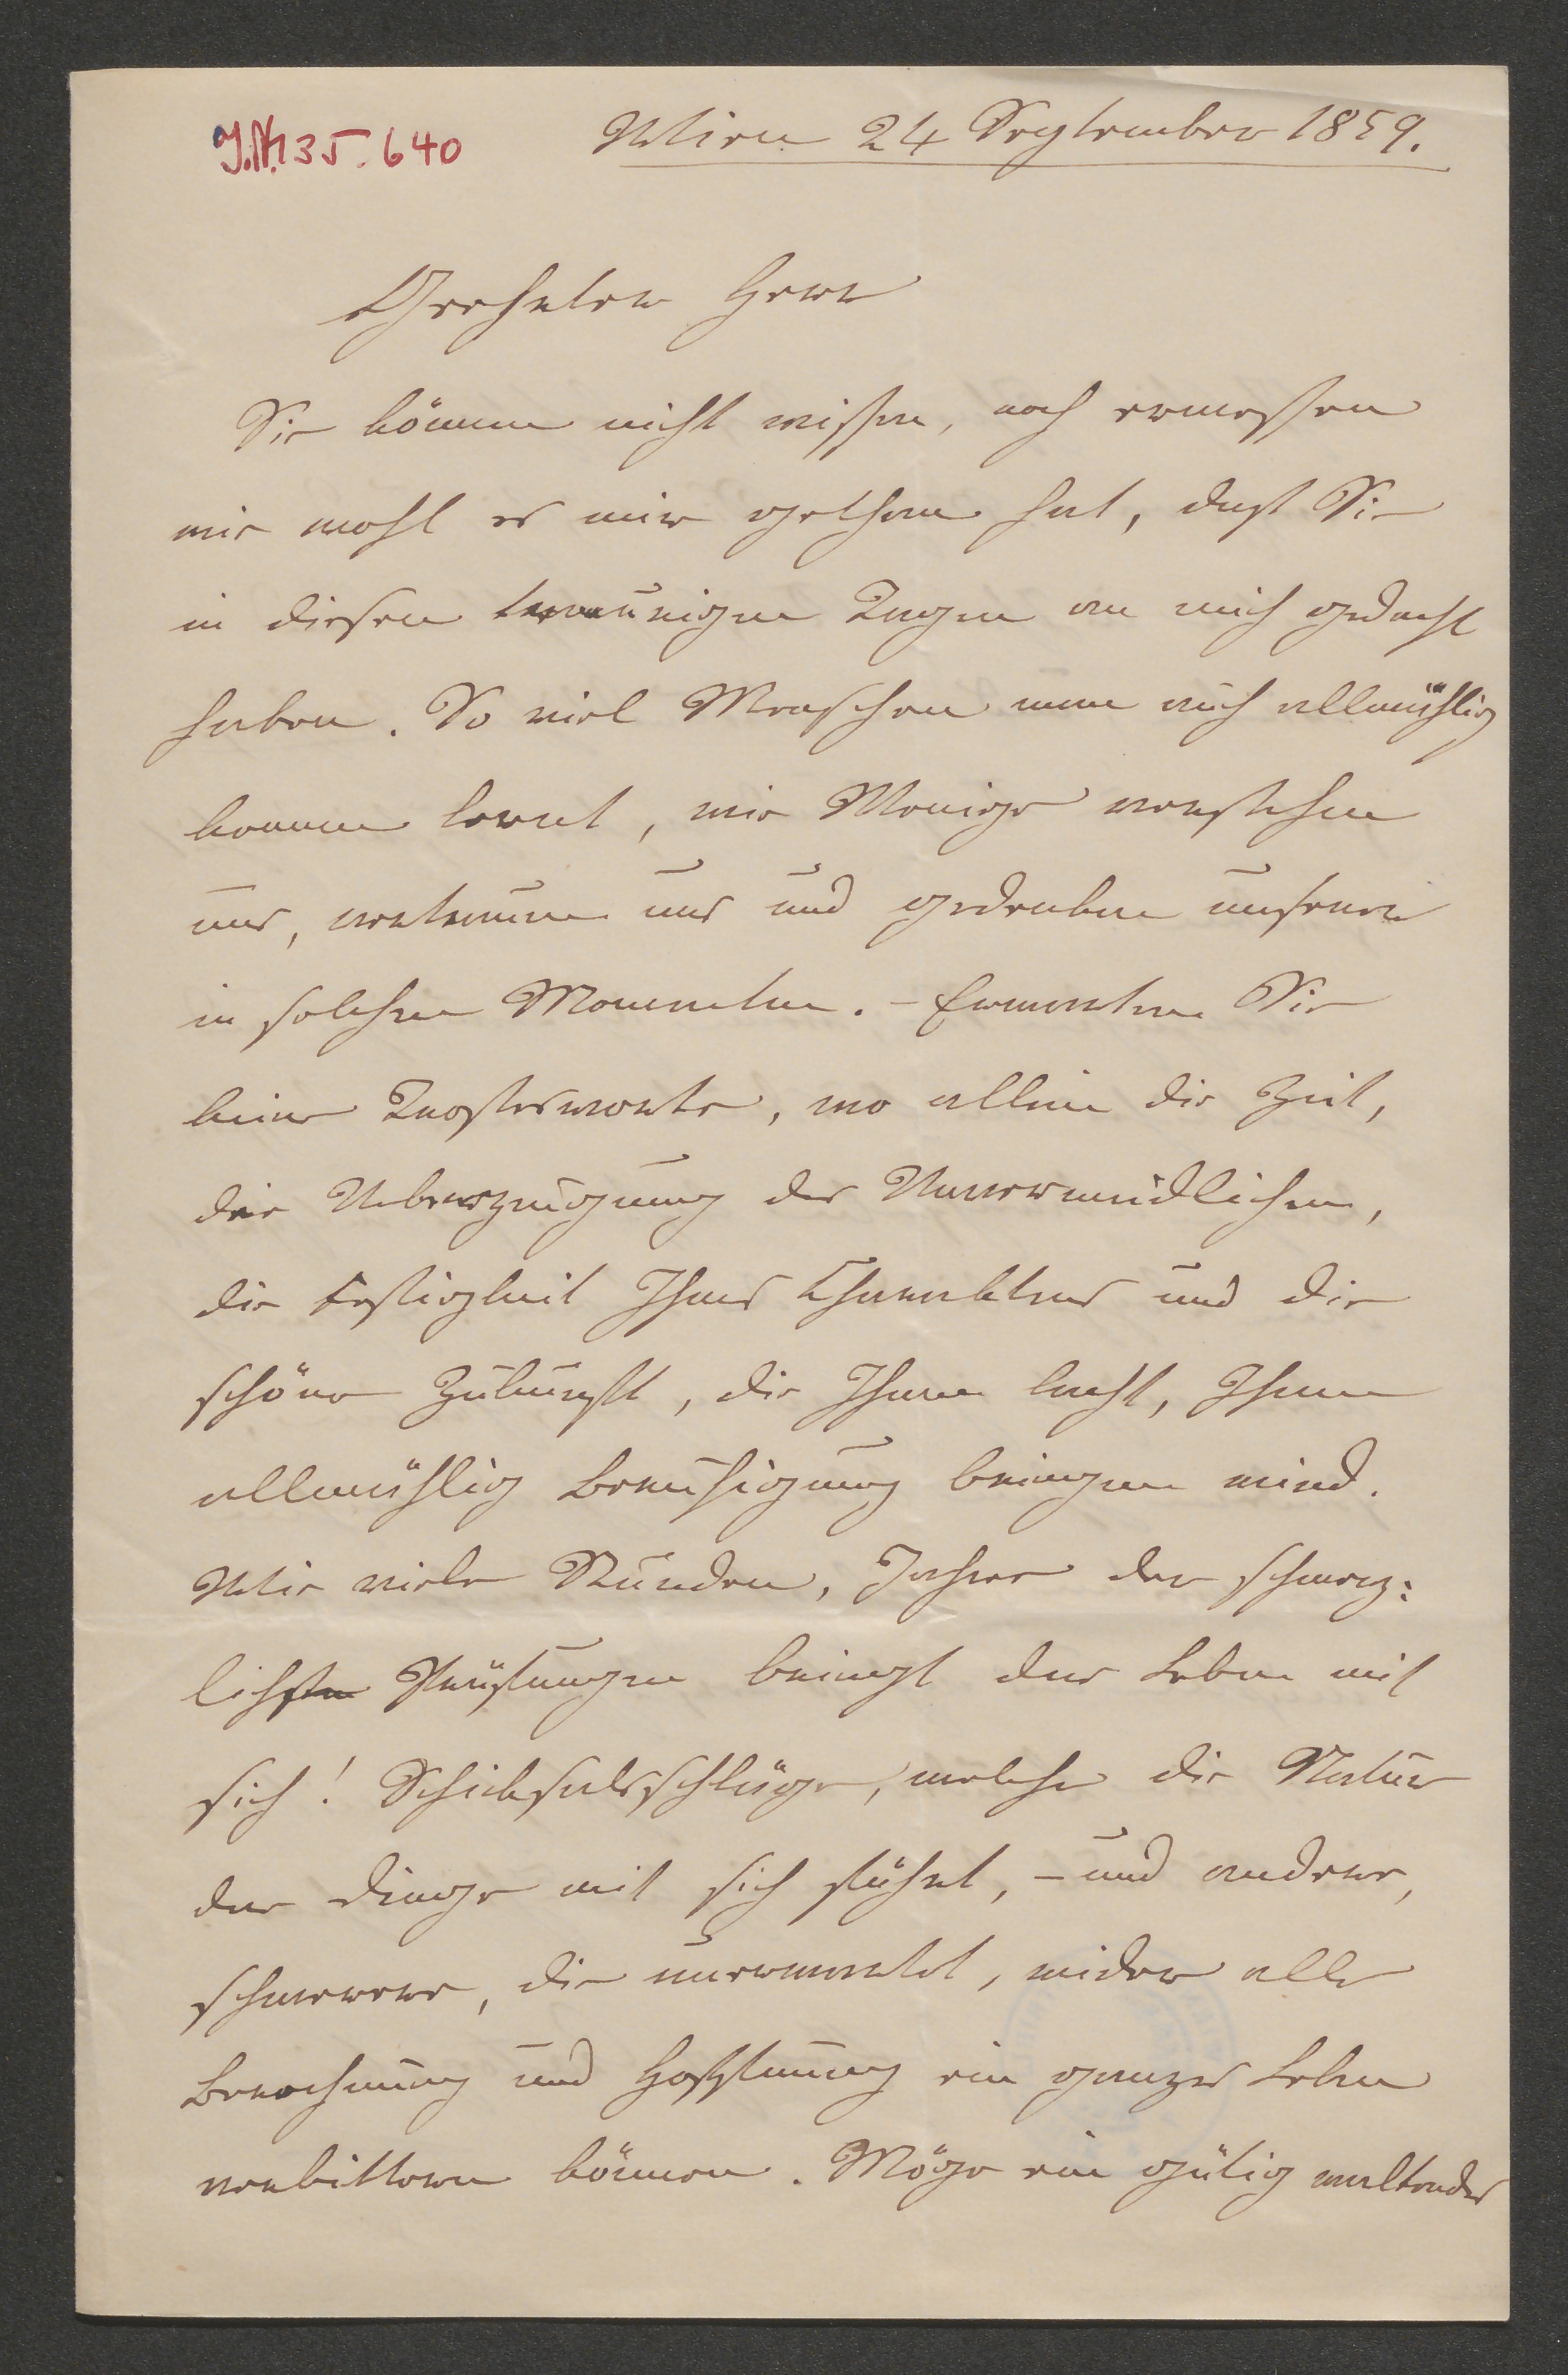 J.N. 35.640
Wien 24 September 1859.
Geehrter Herr
Sie können nicht wissen, noch ermessen
wie wohl es mir gethan hat, daß Sie
in diesen traurigen Tagen an mich gedacht
haben. So viel Menschen man auch allmählig
kennen lernt, wie Wenige verstehen
uns, vertrauen uns und gedenken unserer
in solchen Momenten. – Erwarten Sie
keine Trostesworte, wo allein die Zeit,
die Ueberzeugung des Unvermeidlichen,
die Festigkeit Ihres Charakters und die
schöne Zukunft, die Ihnen lacht, Ihnen
allmählig Beruhigung bringen wird.
Wie viele Stunden, Jahre der schmerz:
lichsten Prüfungen bringt das Leben mit
sich! Schicksalsschläge, welche die Natur
der Dinge mit sich führt, – und andere,
schwerere, die unerwartet, wider alle
Berechnung und Hoffnung ein ganzes Leben
verbittern können. Möge ein gütig waltendes